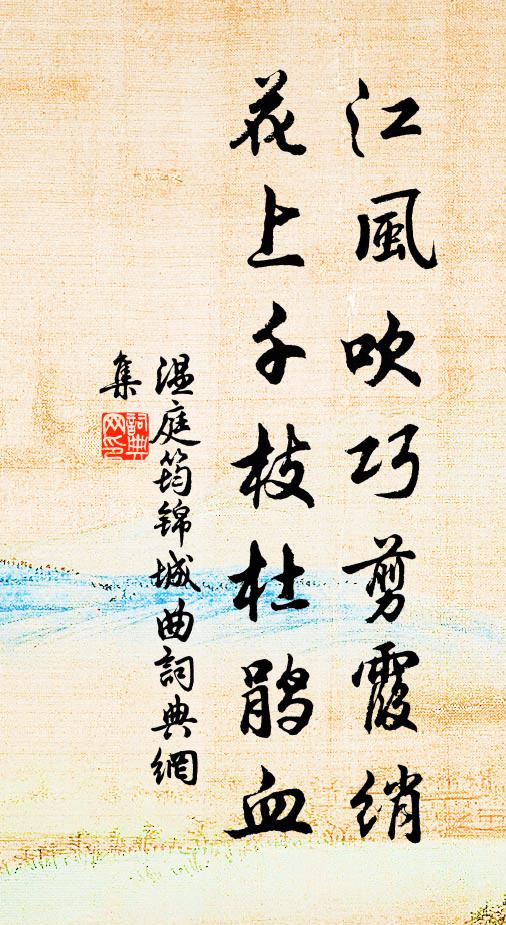 江風吹巧剪霞綃
花上千枝杜鵑血
温庭筠錦城曲詞典網
集
詞典
网印